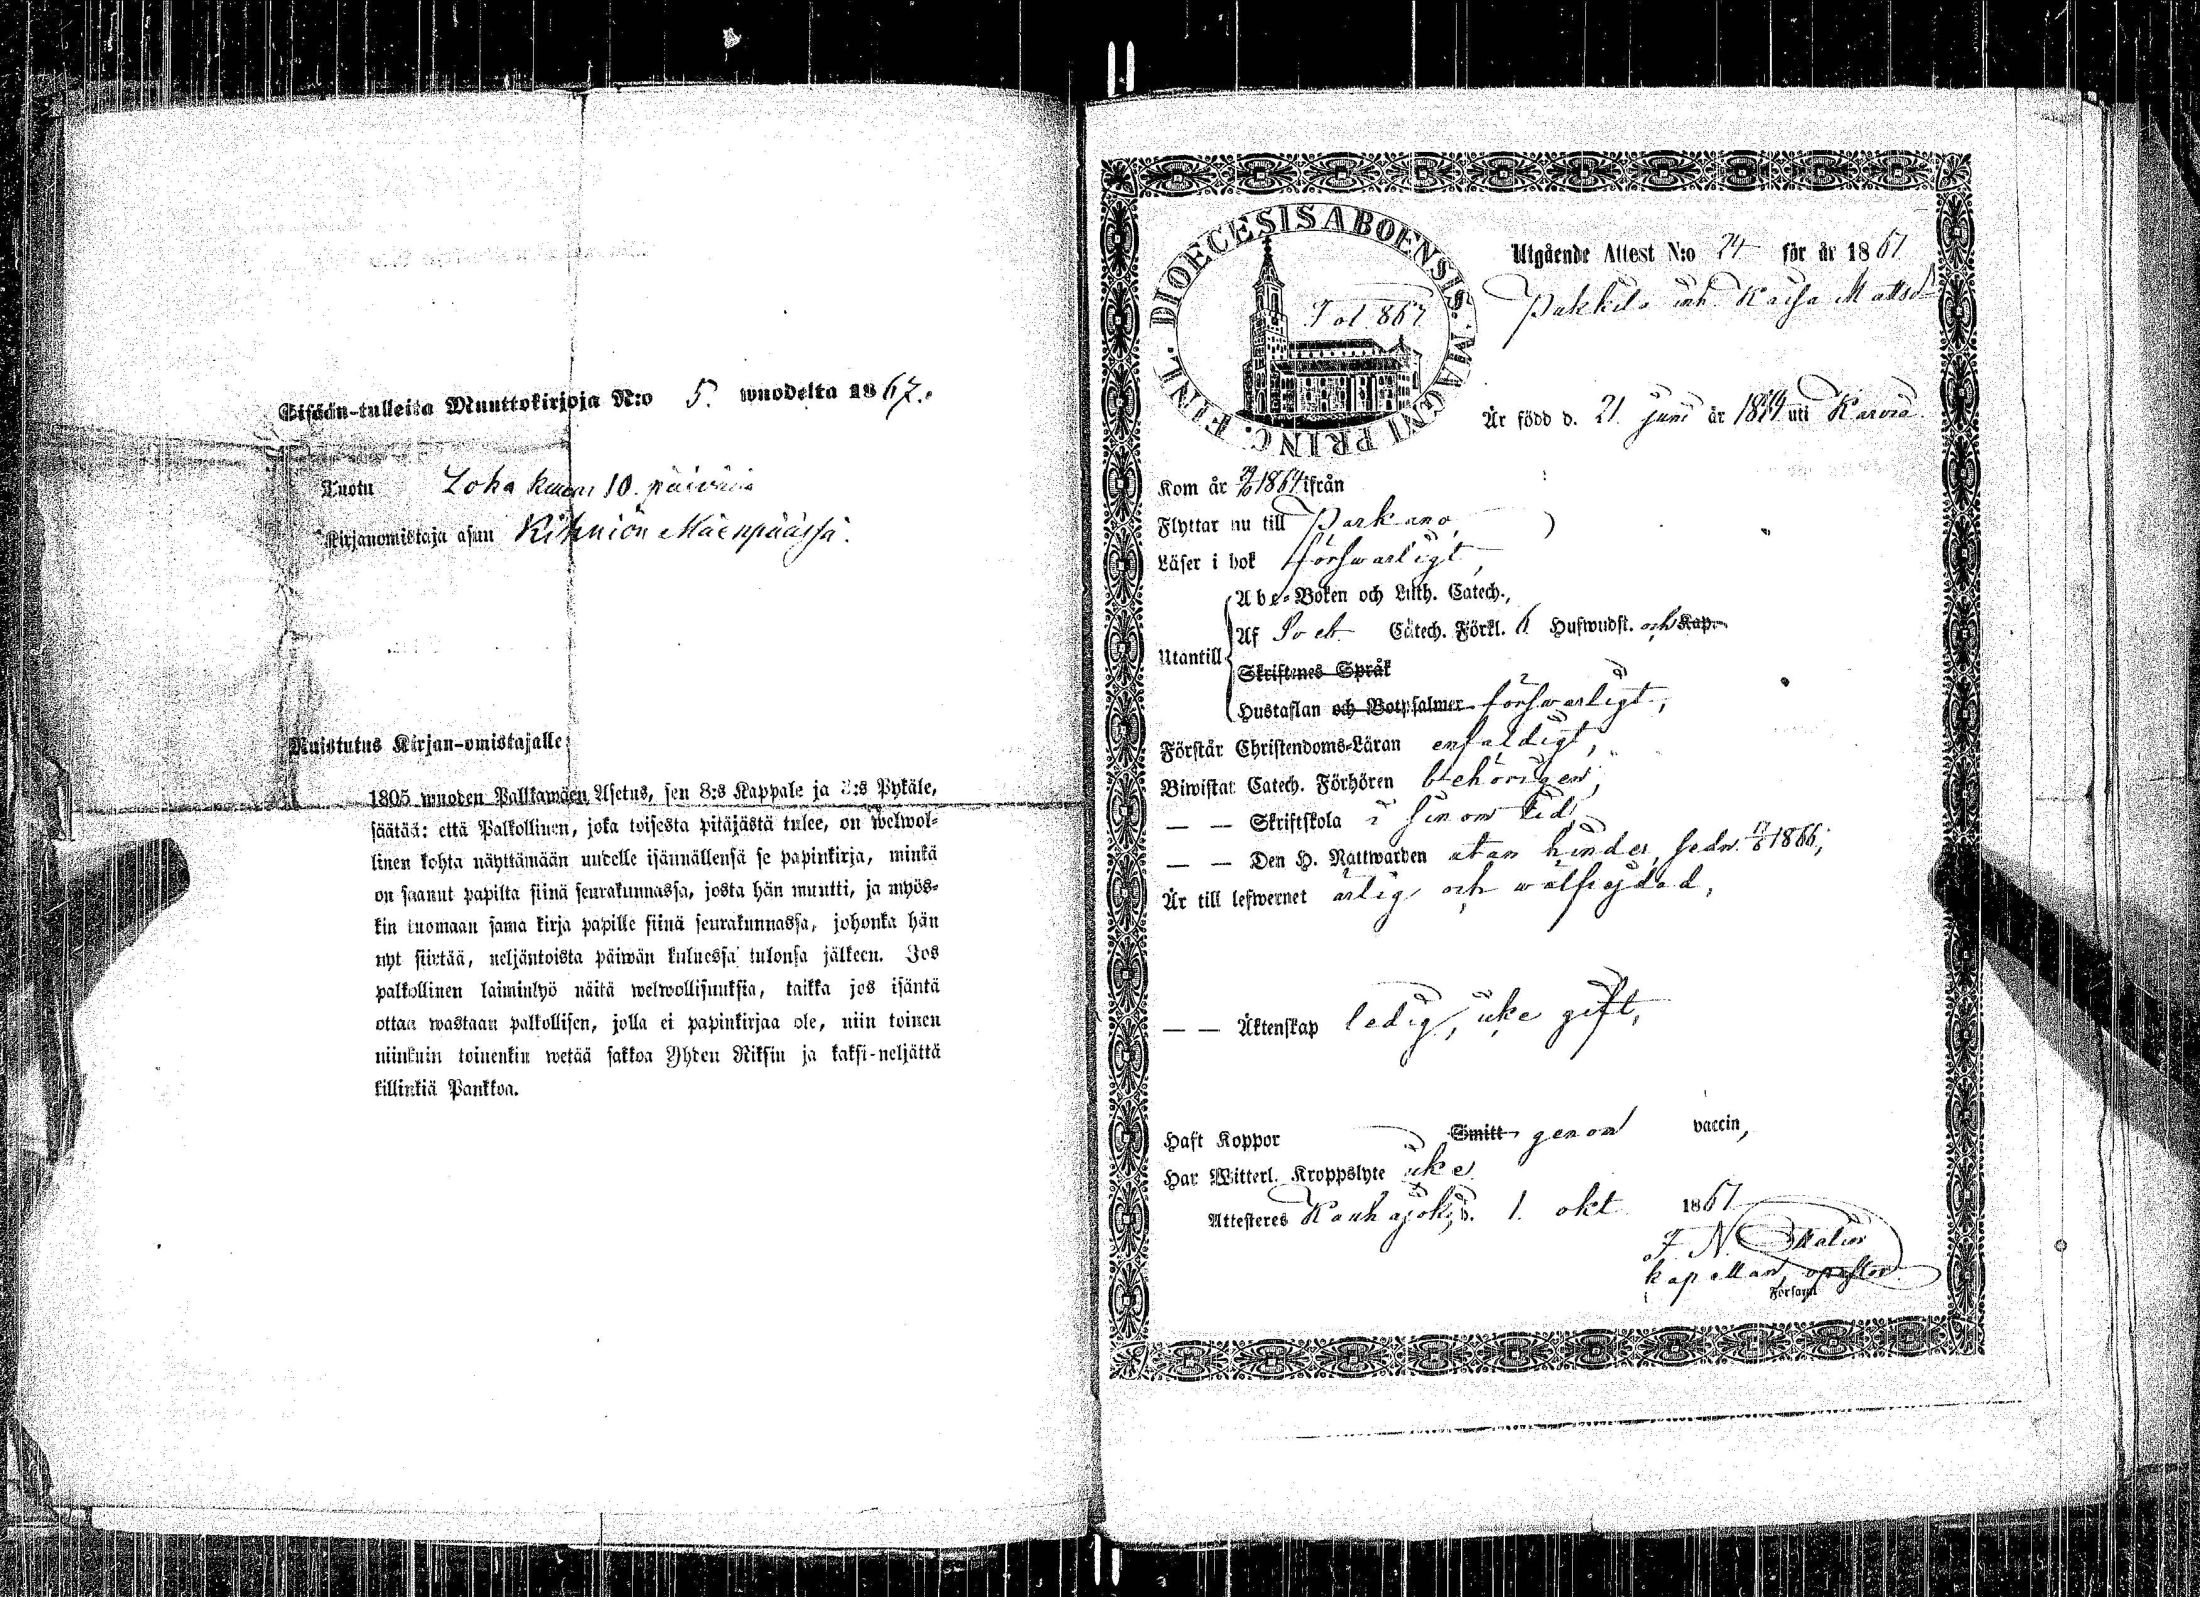 Sisään-tulleita Muuttokirjoja N:o 5. wuodelta 1867.
Tuotu Loka kuun 10. päivänä
Kirjanomistaja asuu Kihniön Mäenpäässä.
Muistutus Kirjan-omistajalle:
1805 wuoden Palkkawäen Asetus, sen 8:s Kappale ja 3:s Pykäle,
säätää: että Palkollinen, joka toisesta pitäjästä tulee, on welwol-
linen kohta näyttämään uudelle isännällensä se papinkirja, minkä
on saanut papilta siinä seurakunnassa, josta hän muutti, ja myös-
kin tuomaan sama kirja papille siinä seurakunnassa, johonka hän
nyt siirtää, neljäntoista päiwän kuluessa tulonsa jälkeen. Jos
palkollinen laiminlyö näitä welwollisuuksia, taikka jos isäntä
ottaa wastaan palkollisen, jolla ei papinkirjaa ole, niin toinen
niinkuin toinenkin wetää sakkoa Yhden Riksin ja kaksi-neljättä
killinkiä Pankkoa.
DIOECESIS ABOENSIS. MAGNI PRINC. FINL.
Fol. 867
Utgående Attest N:o 74 för år 1867
Pakkila inh. Kaisa Mattsd
Är född d. 21 juni år uti Karvia
Kom år 1864 ifrån
Flyttar nu till Parkano,
Läser i bok förswarligt,
Utantill
Abc-Boken och Luth. Catech.,
Af Catech. Förkl. 6 Hufwudst. och Kap.
Skriftenes Språk
Hustaflan och Botpsalmer förswarligt,
Förstår Christendoms-Läran enfaldigt,
Biwistat Catech. Förhören behörigen,
— — Skriftskola i sin om tid,
— — Den H. Nattwarden utan hinder, sedn. 1866;
Är till lefwernet ärlig och wälfrejdad,
— — Äktenskap ledig, icke gift,
Haft Koppor Smitt genom vaccin,
Har Witterl. Kroppslyte icke
Attesteres Kauhajoki, d. 1. okt 1867
kapellan, v pastor
Församl